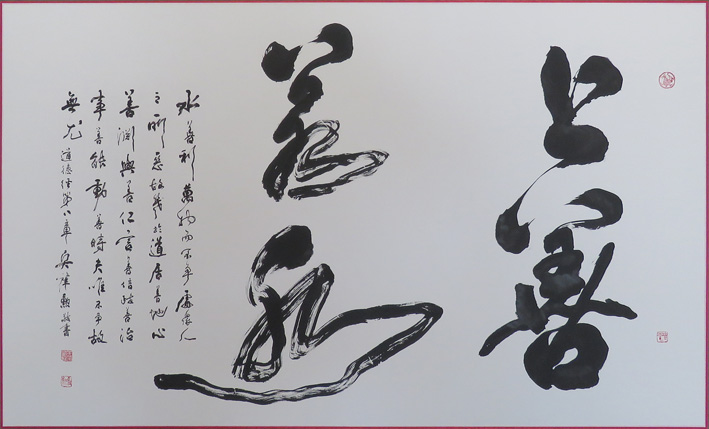 上善
若水
水善利萬物而不爭處衆人
之所惡故幾於道居善地心
善淵與善仁言善信政善治
事善能動善時夫唯不爭故
無尤 道德經第八章 書